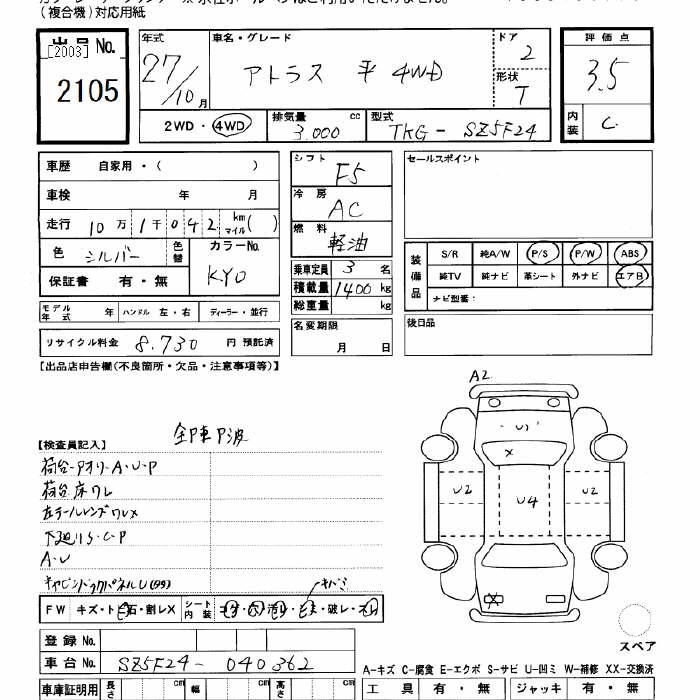 (複合機)対応用紙
出品 No.
[2003]
2105
年式
27/10月
車名・グレード
アトラス 平 4WD
ドア
2
形状
T
評価点
3.5
内装
C
2WD・4WD
排気量 cc
3.000
型式
TKG-SZ5F24
車歴 自家用・( )
車検 年 月
走行 10万1千042 km マイル( )
色 シルバー 色替
カラーNo.
KY0
保証書 有・無
モデル年式 年 ハンドル 左・右 ディーラー・並行
リサイクル料金 8.730 円 預託済
シフト
F5
冷房
AC
燃料
軽油
乗車定員 3 名
積載量 1400 kg
総重量 kg
名変期限
月 日
セールスポイント
装備品
S/R 純A/W P/S P/W ABS
純TV 純ナビ 革シート 外ナビ エアB
ナビ型番:
後日品
[出品店申告欄(不良箇所・欠品・注意事項等)]
【検査員記入】
荷台アオリ-A・U・P
荷台床ワレ
左テールレンズワレX
下廻りS・C・P
A・U
キズミ
FW キズ・ト石・割レX
シート内装
破レ
登録 No.
車台 No. SZ5F24-040362
車庫証明用 長さ cm 幅 cm 高さ cm
A2
U1
X
U2
U4
U2
X
スペア
A-キズ C-腐食 E-エクボ S-サビ U-凹ミ W-補修 XX-交換済
工具 有・無 ジャッキ 有・無